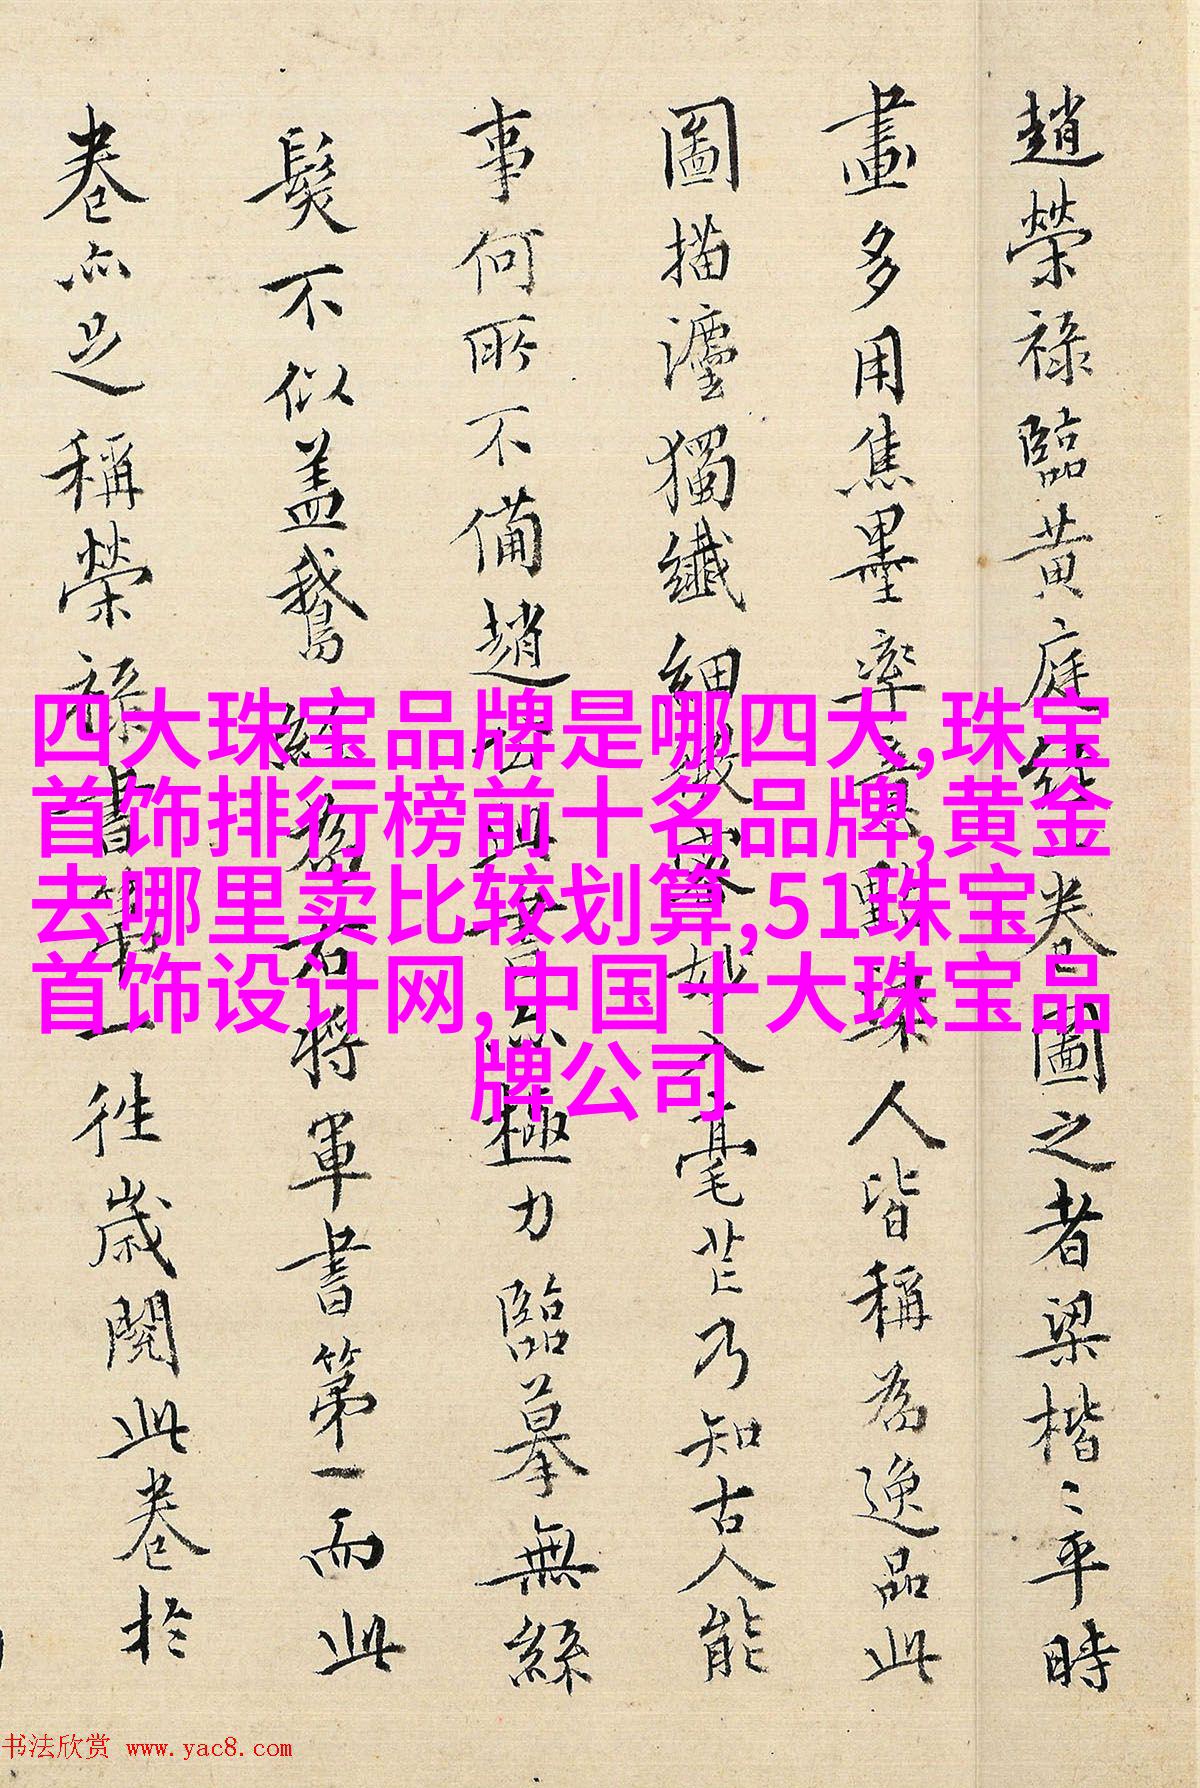 趙榮祿臨黃庭經卷圖之者梁楷〻平時
畫多用焦墨率意點綴人皆稱為逸品此
圖描灋獨纖細緻密妙入毫芒乃知古人能
事何所不備趙此書亦極力臨摹無絲
髮不似蓋鵝經為右將軍書第一而此
卷亦足稱榮祿書第一往歲閱此卷於
四大珠宝品牌是哪四大,珠宝
首饰排行榜前十名品牌,黄金
去哪里卖比较划算,51珠宝
首饰设计网,中国十大珠宝品
牌公司
书法欣赏 www.yac8.com